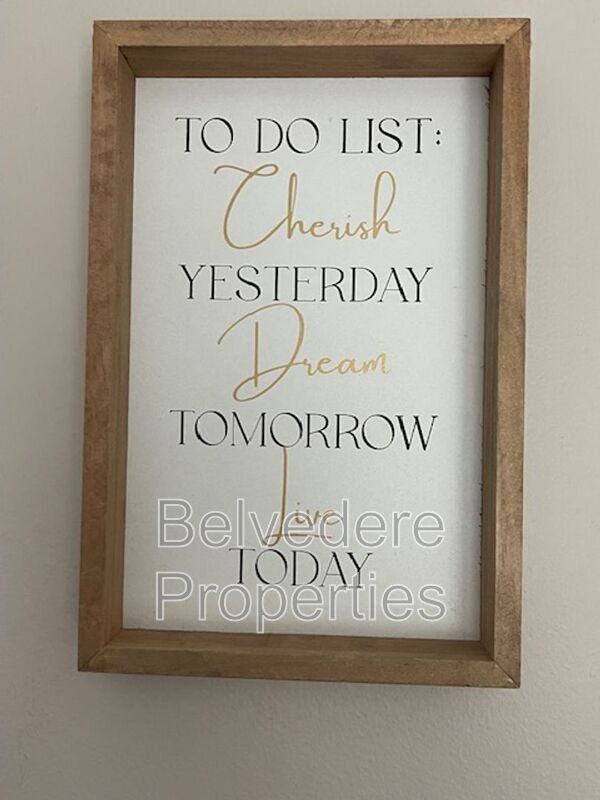 TO DO LIST:
Cherish
YESTERDAY
Dream
TOMORROW
Live
TODAY
Belvedere
Properties